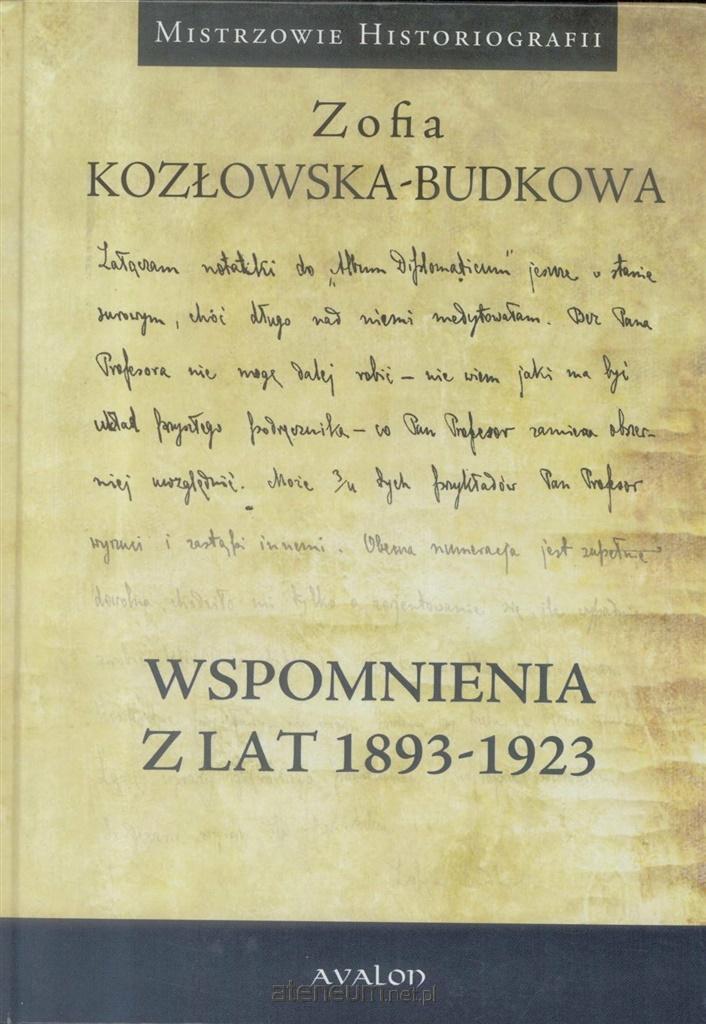 MISTRZOWIE HISTORIOGRAFII
Zofia
KOZŁOWSKA-BUDKOWA
Załączam notatki do „Album Diplomaticum" jeszcze w stanie
surowym, choć długo nad niemi medytowałam. Bez Pana
Profesora nie mogę dalej robić – nie wiem jaki ma być
układ przyszłego podręcznika – co Pan Profesor zamierza obszer-
niej uwzględnić. Może 3/4 tych przykładów Pan Profesor
wyrzuci i zastąpi innemi. Obecna numeracja jest zupełnie
dowolna, chodziło mi tylko o zorjentowanie się, ile
WSPOMNIENIA
Z LAT 1893-1923
AVALON
ateneum.net.pl